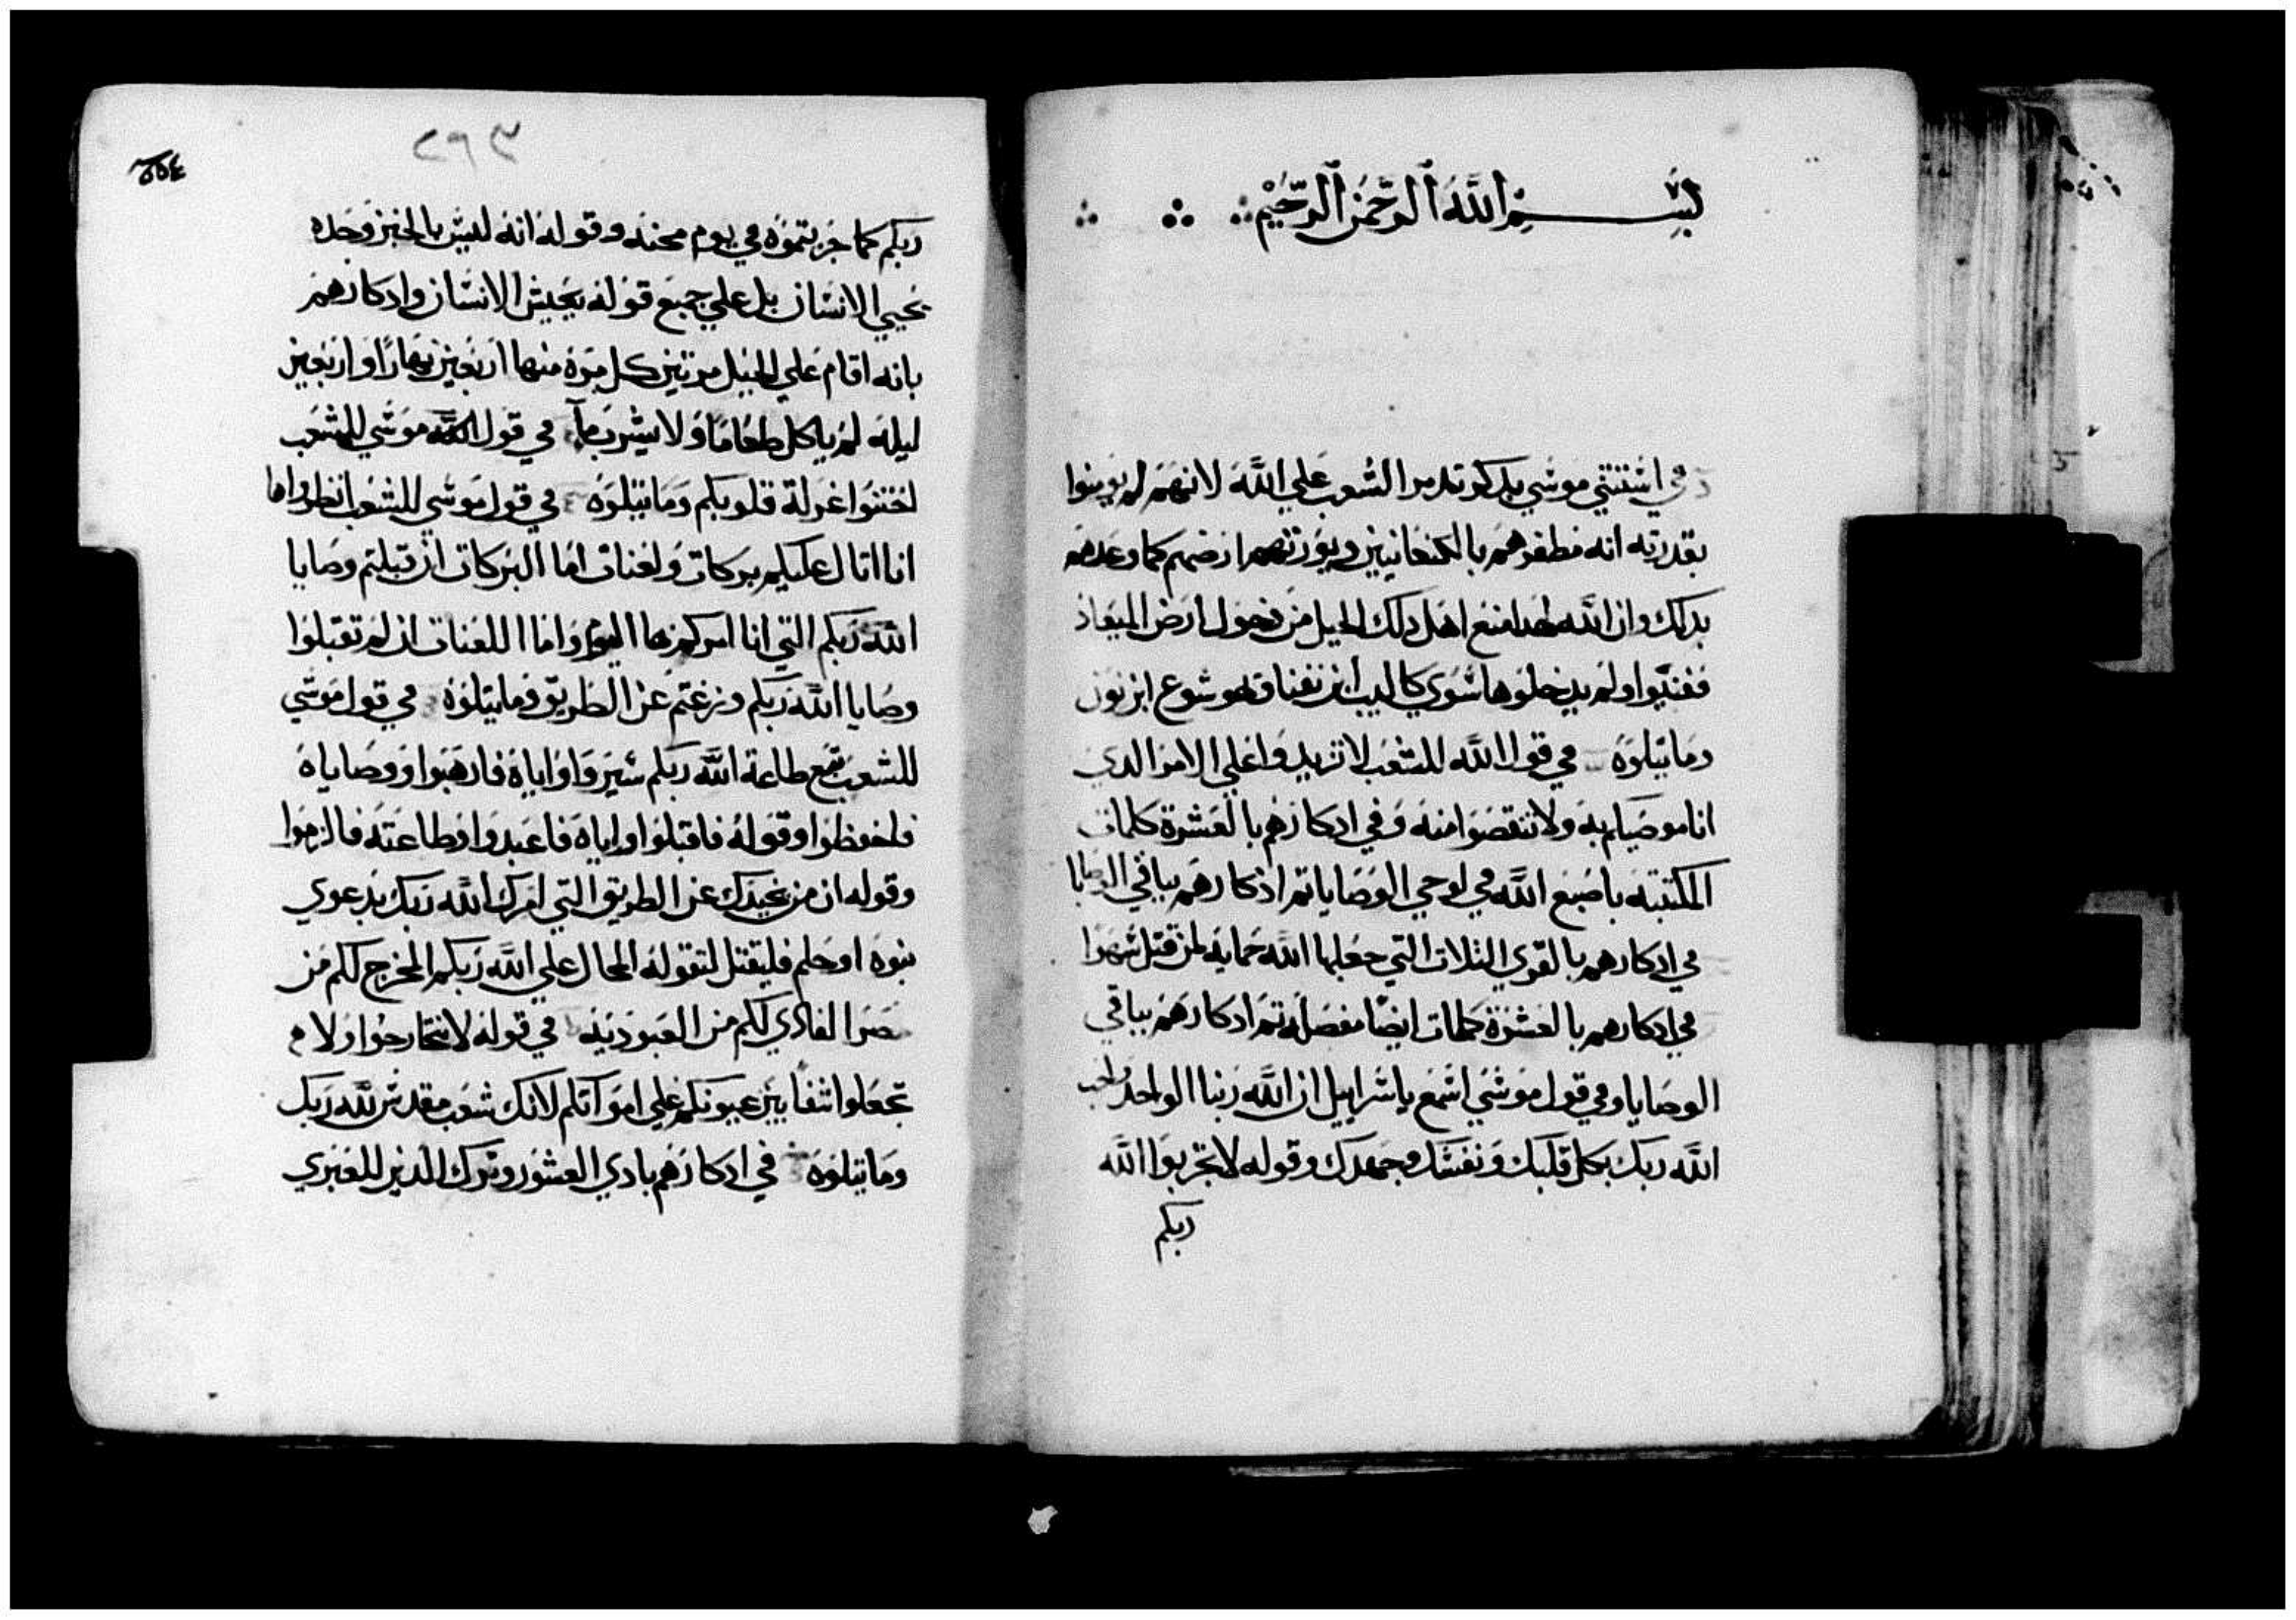 بسم الله الرحمن الرحيم
في استثني موسي بذكر تدمر الشعب علي الله لانهم لم يومنوا
بقدرته انه مظفرهم بالكنعانيين ويورثهم ارضهم كما وعدهم
بدلك وان الله لهدا منع اهل دلك الجيل من دخول ارض الميعاد
ففنيوا ولم يدخلوها سوي كالب ابن يفنا وهوشوع ابن نون
وما يتلوه في قول الله للشعب لا تزيدوا علي الامر الدي
انا موصيكم به ولا تنقصوا منه وفي ادكارهم بالعشرة كلمات
المكتبته باصبع الله في لوحي الوصايا تم ادكارهم بباقي الوصايا
في ادكارهم بالقري التلات التي جعلها الله حمايه لمن قتل سهوا
في ادكارهم بالعشرة كلمات ايضا مفصله تم ادكارهم بباقي
الوصايا وفي قول موسي اسمع ياسراييل ان الله ربنا الواحد
الله ربك بكل قلبك ونفسك وجهدك وقوله لا تجربوا الله
ربكم
٢٩٣
ربكم كما جربتموه في يوم محنه وقوله انه ليس بالخبز وحده
يحيي الانسان بل علي جميع قوله يعيش الانسان وادكارهم
بانه اقام علي الجبل مرتين كل مرة منها اربعين نهارا واربعين
ليله لم ياكل طعاما ولا يشرب ماء في قول موسي للشعب
اختنوا غرلة قلوبكم وما يتلوه في قول موسي للشعب انظروا ها
انا اتال عليكم بركات ولعنات اما البركات ان قبلتم وصايا
الله ربكم التي انا امركم بها اليوم واما اللعنات ان لم تقبلوا
وصايا الله ربكم وزغتم عن الطريق وما يتلوه في قول موسي
للشعب تتبع طاعة الله ربكم سيروا واياه فارهبوا ووصاياه
فاحفظوا وقوله فاقبلوا واياه فاعبدوا وطاعته فالزموا
وقوله ان من يحيدك عن الطريق التي امرك الله ربك بدعوي
نبوه او حلم فليقتل لتقوله المحال علي الله ربكم المخرج لكم من
مصر الفادي لكم من العبوديه في قوله لا ولا
تجعلوا بين عيونكم علي امواتكم لانك شعب مقدس لله ربك
وما يتلوه في ادكارهم بادي العشور وترك الدين للعبري